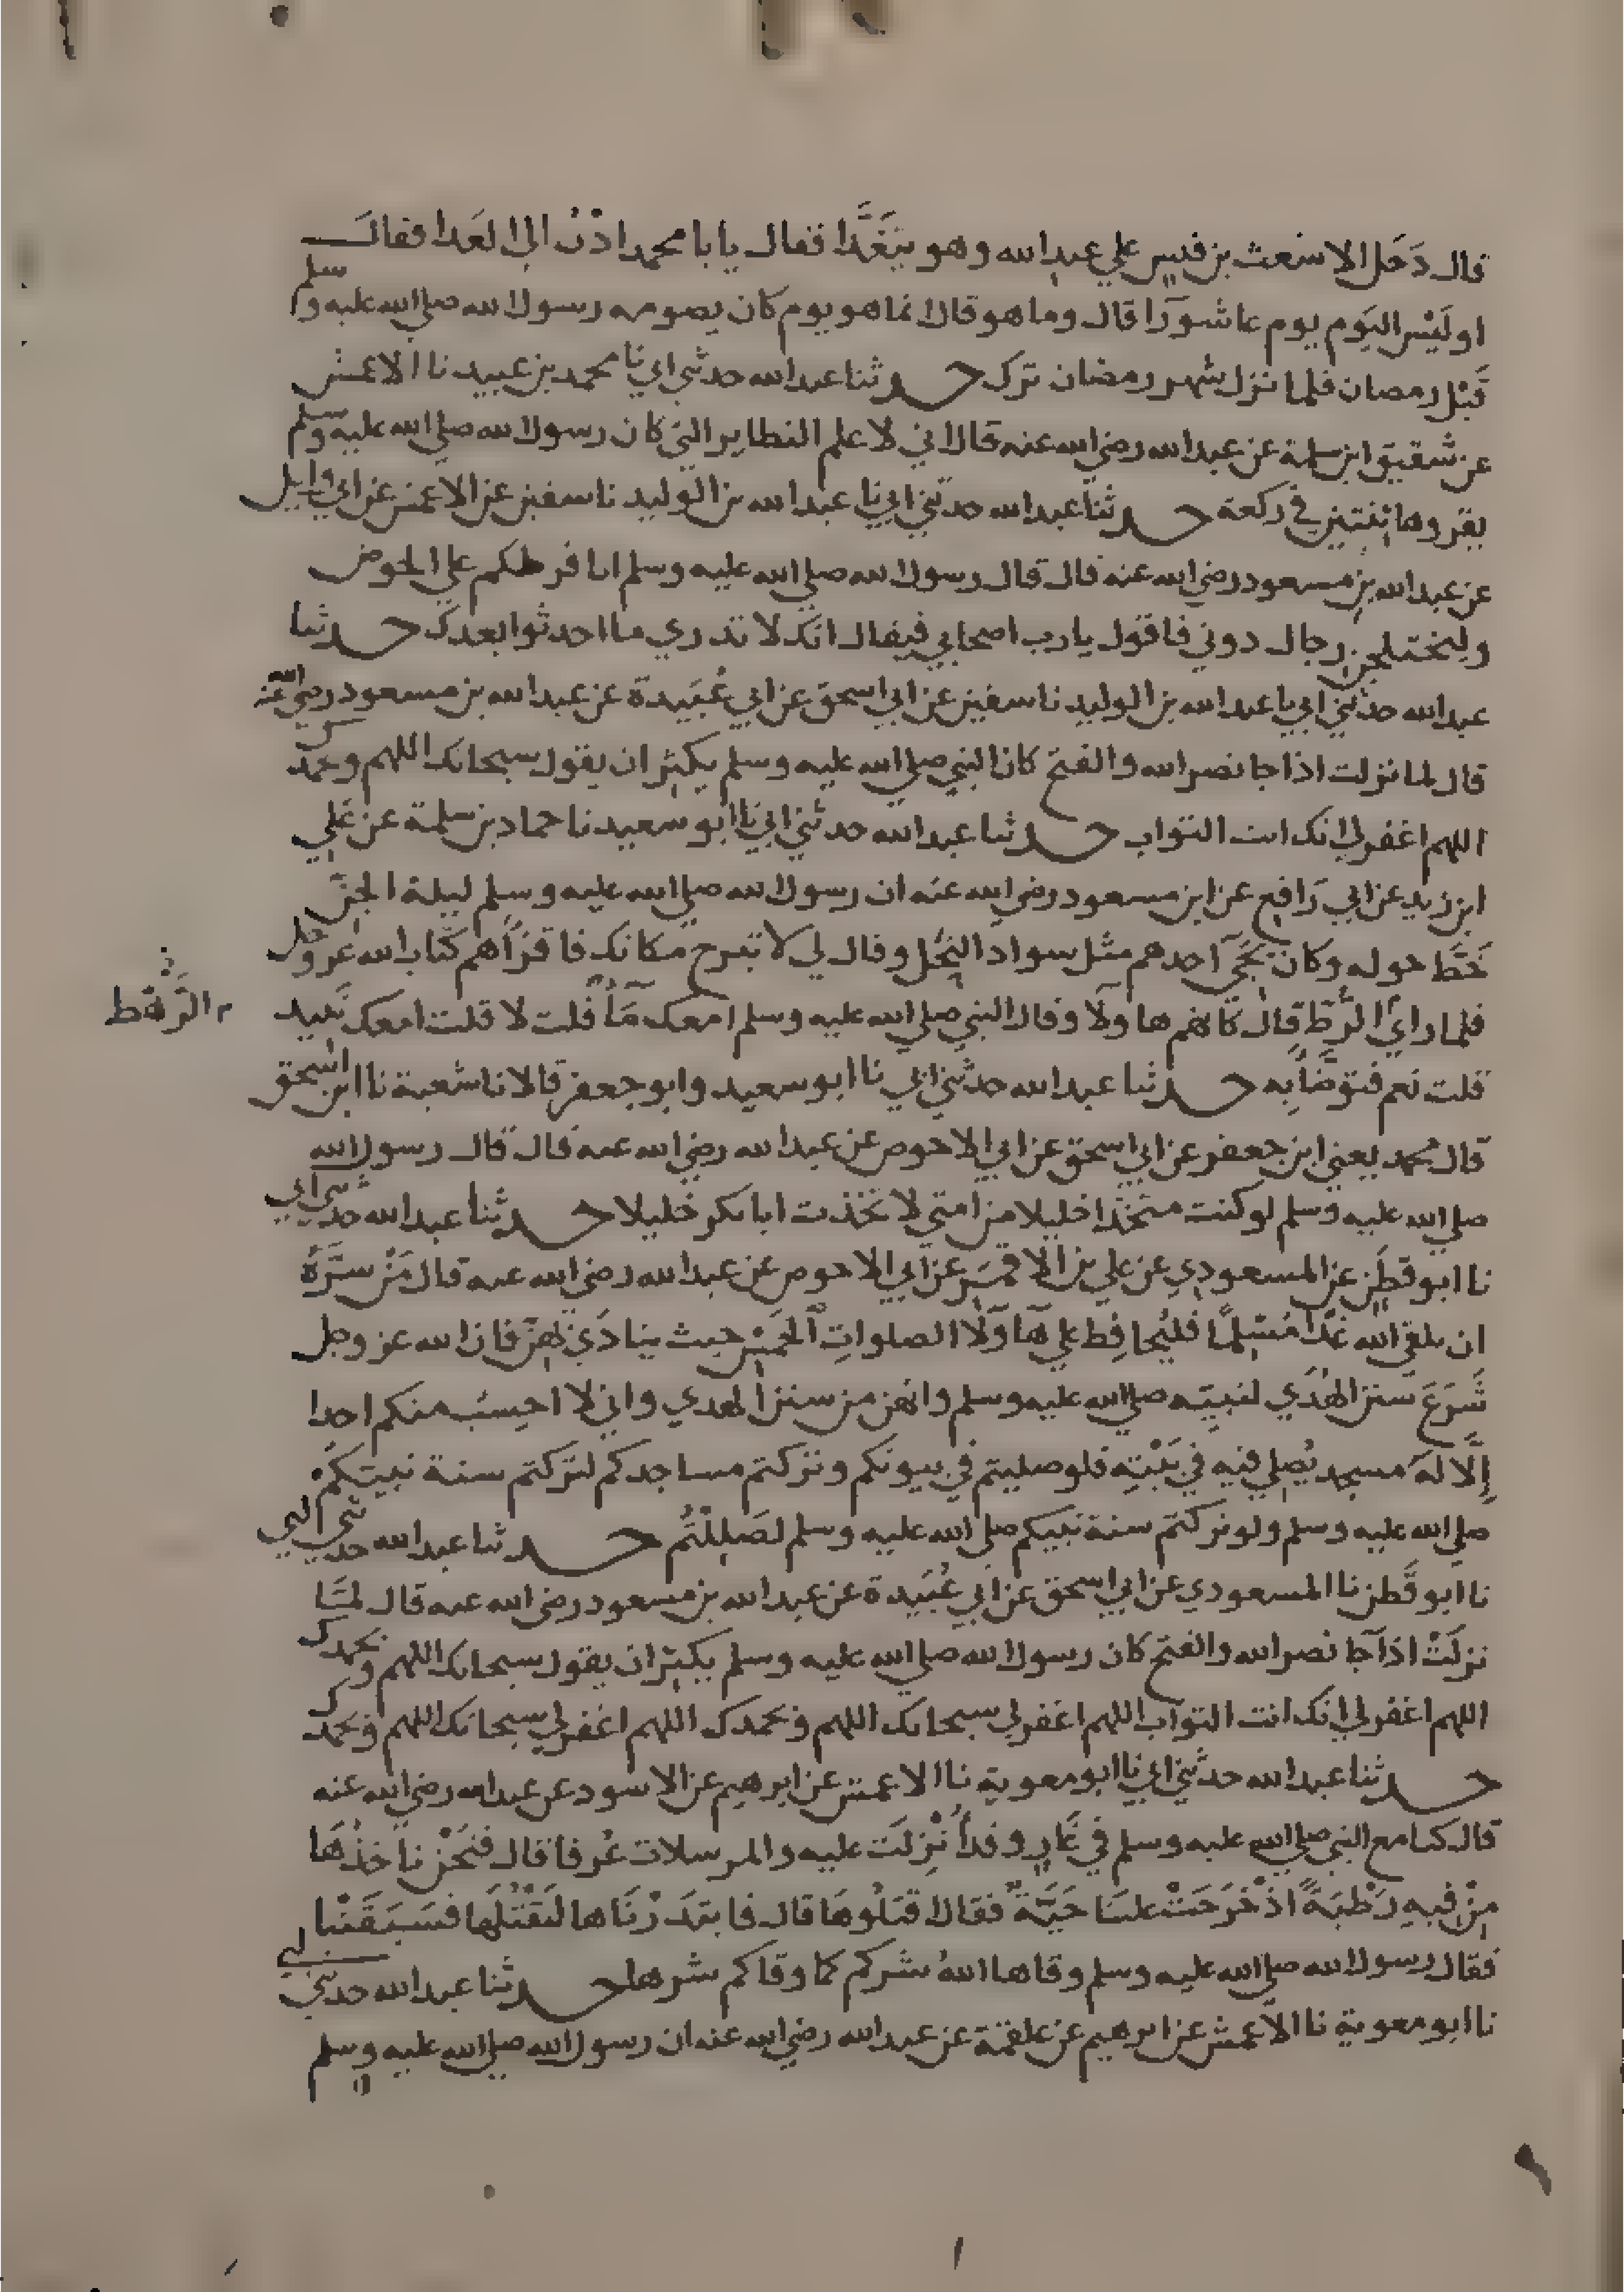 قال دَخَل الاشعث بن قيس علي عبد الله وهو يتَغَدَّا فقال يا با محمد ادْنُ الي الغَدا فقالَ
او لَيْسَ اليَوم يوم عاشورآ قال وما هو قال انما هو يوم كان يصومه رسول الله صلي الله عليه وسلم
قَبْل رمضان فلما نزل شهر رمضان ترك حدثنا عبد الله حدثني ابي نا محمد بن عبيد نا الاعمش
عن شقيق ابن سلمة عن عبد الله رضي الله عنه قال اني لاعلم النظاير التي كان رسول الله صلي الله عليه وسلم
يقروها ثنتين في ركعة حدثنا عبد الله حدثني ابي نا عبد الله بن الوليد نا سفين عن الاعمش عن ابي وايل
عن عبد الله بن مسعود رضي الله عنه قال قال رسول الله صلي الله عليه وسلم انا فرطكم علي الحوض
وليختلجن رجال دوني فاقول يا رب اصحابي فيقال انك لا تدري ما احدثوا بعدك حدثنا
عبد الله حدثني ابي نا عبد الله بن الوليد نا سفين عن ابي اسحق عن ابي عُبَيدة عن عبد الله بن مسعود رضي الله عنه
قال لما نزلت اذا جا نصر الله والفتح كان النبي صلي الله عليه وسلم يكثر ان يقول سبحانك اللهم وبحمدك
اللهم اغفر لي انك انت التواب حدثنا عبد الله حدثني ابي نا ابو سعيد نا حماد بن سلمة عن علي
ابن زيد عن ابي رَافع عن ابن مسعود رضي الله عنه ان رسول الله صلي الله عليه وسلم ليلة الجنّ
خَطَّ حوله وكان يَجي احدهم مثل سواد النخل وقال لي لا تبرح مكانك فاقرأهم كتاب الله عز وجل
فلما راي الزُّطّ قال كانهم هاولا وقال النبي صلي الله عليه وسلم امعك مَآ قلت لا قلت امعك نبيد
م الرَّهْط
قلت نعم فتوضأ به حدثنا عبد الله حدثني ابي نا ابو سعيد وابو جعفر قالا نا شعبة نا ابن اسحق
قال محمد يعني ابن جعفر عن ابي اسحق عن ابي الاحوص عن عبد الله رضي الله عنه قال قال رسول الله
صلي الله عليه وسلم لو كنت متخذا خليلا من امتي لاتخذت ابا بكر خليلا حدثنا عبد الله حدثني ابي
نا ابو قطن عن المسعودي عن علي بن الاقمر عن ابي الاحوص عن عبد الله رضي الله عنه قال مَنْ سرَّهُ
ان يلقي الله غدًا مُسْلِمًا فليُحافِظ علي هَآوَلآ الصلواتِ الخَمْسِ حيث ينادَي بهنّ فان الله عز وجل
شَرَعَ سُنن الهُدَي لنبيّه صلي الله عليه وسلم وانهن من سنن الهدي واني لا احسِبُ منكم احدا
إِلَّا لَهُ مسجد يُصلي فيه في بَيْتِه فلو صليتم في بيوتكم وتركتم مساجدكم لتركتم سنة نبيكُم
صلي الله عليه وسلم ولو تركتم سنة نبيكم صلي الله عليه وسلم لضَلَلْتُم حدثنا عبد الله حدثني ابي
نا ابو قَطن نا المسعودي عن ابي اسحق عن ابي عُبَيدة عن عبد الله بن مسعود رضي الله عنه قال لمّا
نزلَتْ اذا جا نصر الله والفتح كان رسول الله صلي الله عليه وسلم يكثر ان يقول سبحانك اللهم وبحمدك
اللهم اغفر لي انك انت التواب اللهم اغفر لي سبحانك اللهم وبحمدك اللهم اغفر لي سبحانك اللهم وبحمدك
حدثنا عبد الله حدثني ابي نا ابو معوية نا الاعمش عن ابرهيم عن الاسود عن عبد الله رضي الله عنه
قال كنا مع النبي صلي الله عليه وسلم في غَارٍ وقد أُنْزِلَت عليه والمرسلات عُرفا قال فنَحْن ناخذُهَا
مِنْ فِيهِ رَطْبَةً اذ خَرَجَتْ علينا حَيَّةٌ فقال اقتلُوهَا قال فابتدرْنَاها لنقْتُلَها فسَبَقَتْنا
فقال رسول الله صلي الله عليه وسلم وقاها اللهُ شركم كما وقاكم شرها حدثنا عبد الله حدثني ابي
نا ابو معوية نا الاعمش عن ابرهيم عن علقمة عن عبد الله رضي الله عنه ان رسول الله صلي الله عليه وسلم